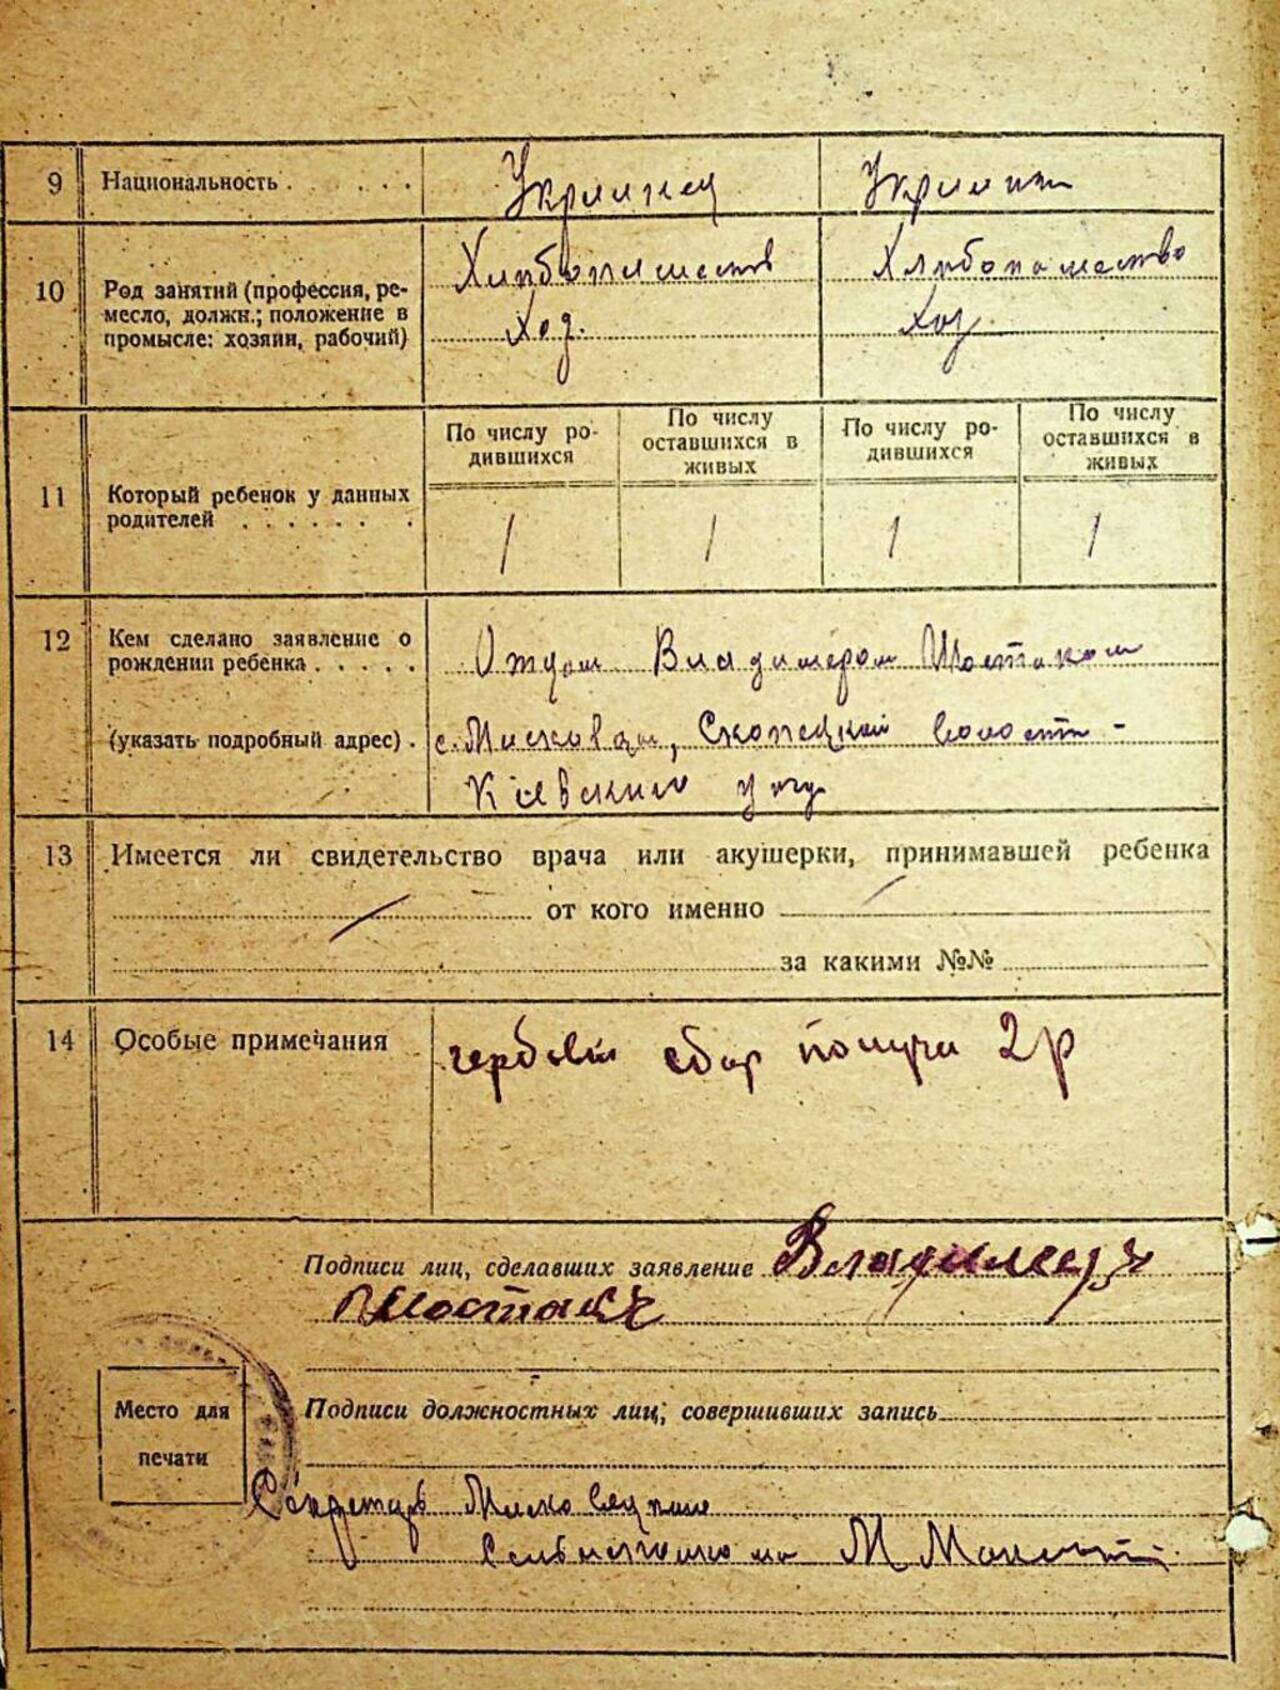 9 Национальность . . . . . . Украинец Украин
10 Род занятий (профессия, ре-
месло, должн.; положение в
промысле: хозяин, рабочий)
Хлебопашеств Хлебопашество
Хоз. Хоз.
11 Который ребенок у данных
родителей . . . . . . .
По числу ро-
дившихся
По числу
оставшихся в
живых
По числу ро-
дившихся
По числу
оставшихся в
живых
1 1 1 1
12 Кем сделано заявление о
рождении ребенка . . . . .
(указать подробный адрес) .
Отцом Владимером Шостаком
с. волости
Киевского
13 Имеется ли свидетельство врача или акушерки, принимавшей ребенка
от кого именно
за какими №№
14 Особые примечания
гербовый сбор 2 р
Подписи лиц, сделавших заявление Владимеръ
Шостакъ
Место для
печати
Подписи должностных лиц, совершивших запись
Секретарь
М